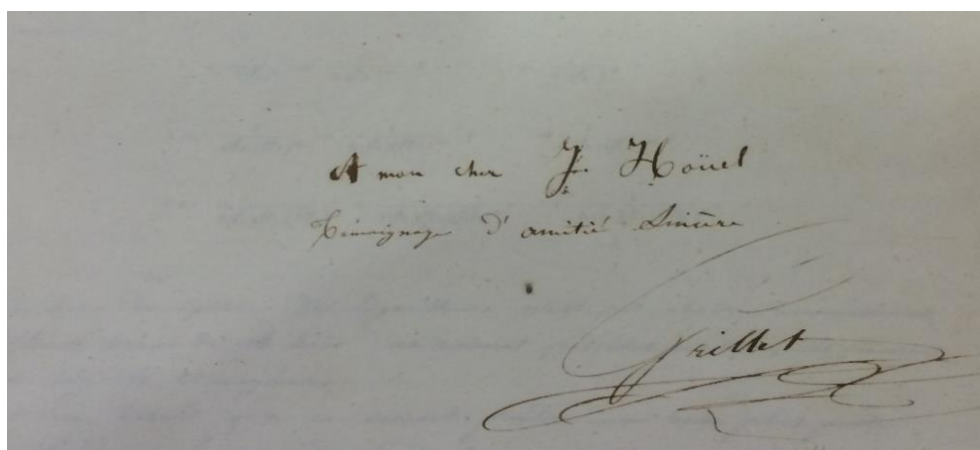 A mon cher J. Hoüel
Témoignage d'amitié Sincère
Grillet